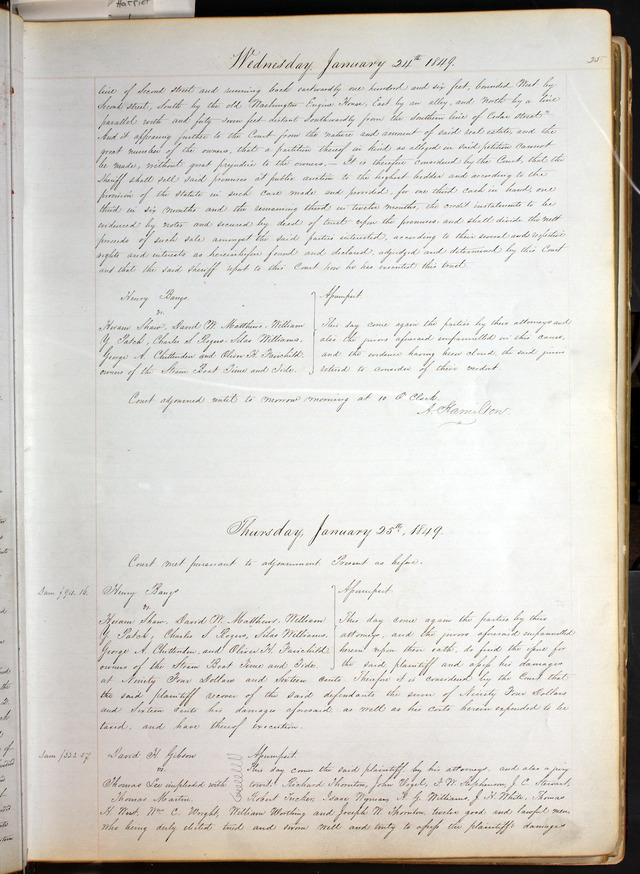 Harriet
Wednesday, January 24th 1849.
25
line of Second street and running back eastwardly one hundred and six feet, bounded West by
Second street, South by the old Washington Engine House, East by an alley, and North by a line
parallel with and forty seven feet distant Southwardly from the Southern line of Cedar street."
And it appearing further to the Court from the nature and amount of said real estate, and the
great number of the owners, that a partition thereof in kind as alleged in said petition cannot
be made, without great prejudice to the owners, — It is therefore considered by the Court, that the
Sheriff shall sell said premises at public auction to the highest bidder and according to the
provision of the statute in such case made and provided for one third cash in hand, one
third in six months and the remaining third in twelve months, the credit instalments to be
evidenced by notes and secured by deed of trust upon the premises and shall divide the nett
proceeds of such sale amongst the said parties interested, according to their several and respective
rights and interests as hereinbefore found and declared, adjudged and determined by this Court
and that the said Sheriff report to this Court how he has executed this trust.
Henry Bangs
vs.
Hiram Shaw, David W. Matthews, William
G. Patch, Charles S. Rogers, Silas Williams,
George A. Chittenden and Oliver H. Fairchild
owners of the Steam Boat Time and Tide.
Assumpsit.
This day come again the parties by their attorneys and
also the jurors aforesaid empannelled in this cause,
and the evidence having been closed, the said jurors
retired to consider of their verdict.
Court adjourned until to morrow morning at 10 O'Clock.
A. Hamilton
Thursday, January 25th, 1849.
Court met pursuant to adjournment Present as before.
Dam $94. 16.
Henry Bangs
vs.
Hiram Shaw, David W. Matthews, William
G. Patch, Charles S. Rogers, Silas Williams,
George A. Chittenden, and Oliver H. Fairchild
owners of the Steam Boat Time and Tide.
Assumpsit.
This day come again the parties by their
attorneys, and the jurors aforesaid empannelled
herein upon their oath, do find the issue for
the said plaintiff and assess his damages
at Ninety Four Dollars and Sixteen cents. Therefore it is considered by the Court that
the said plaintiff recover of the said defendants the sum of Ninety Four Dollars
and Sixteen cents his damages aforesaid as well as his costs herein expended to be
taxed, and have thereof execution.
Dam $332.57
David H. Gibson
vs.
Thomas Lee impleaded with
Thomas Martin.
Assumpsit
This day comes the said plaintiff, by his attorneys, and also a jury
towit: Richard Thornton, John Vogel, F. W. Stephenson, J. C. Stewart,
Robert Tucker, Isaac Wyman, A. G. Williams, J. H. White, Thomas
H. West, Wm C. Wright, William Worthing and Joseph W. Thornton, twelve good and lawful men,
who being duly elected tried and sworn well and truly to assess the plaintiff's damages